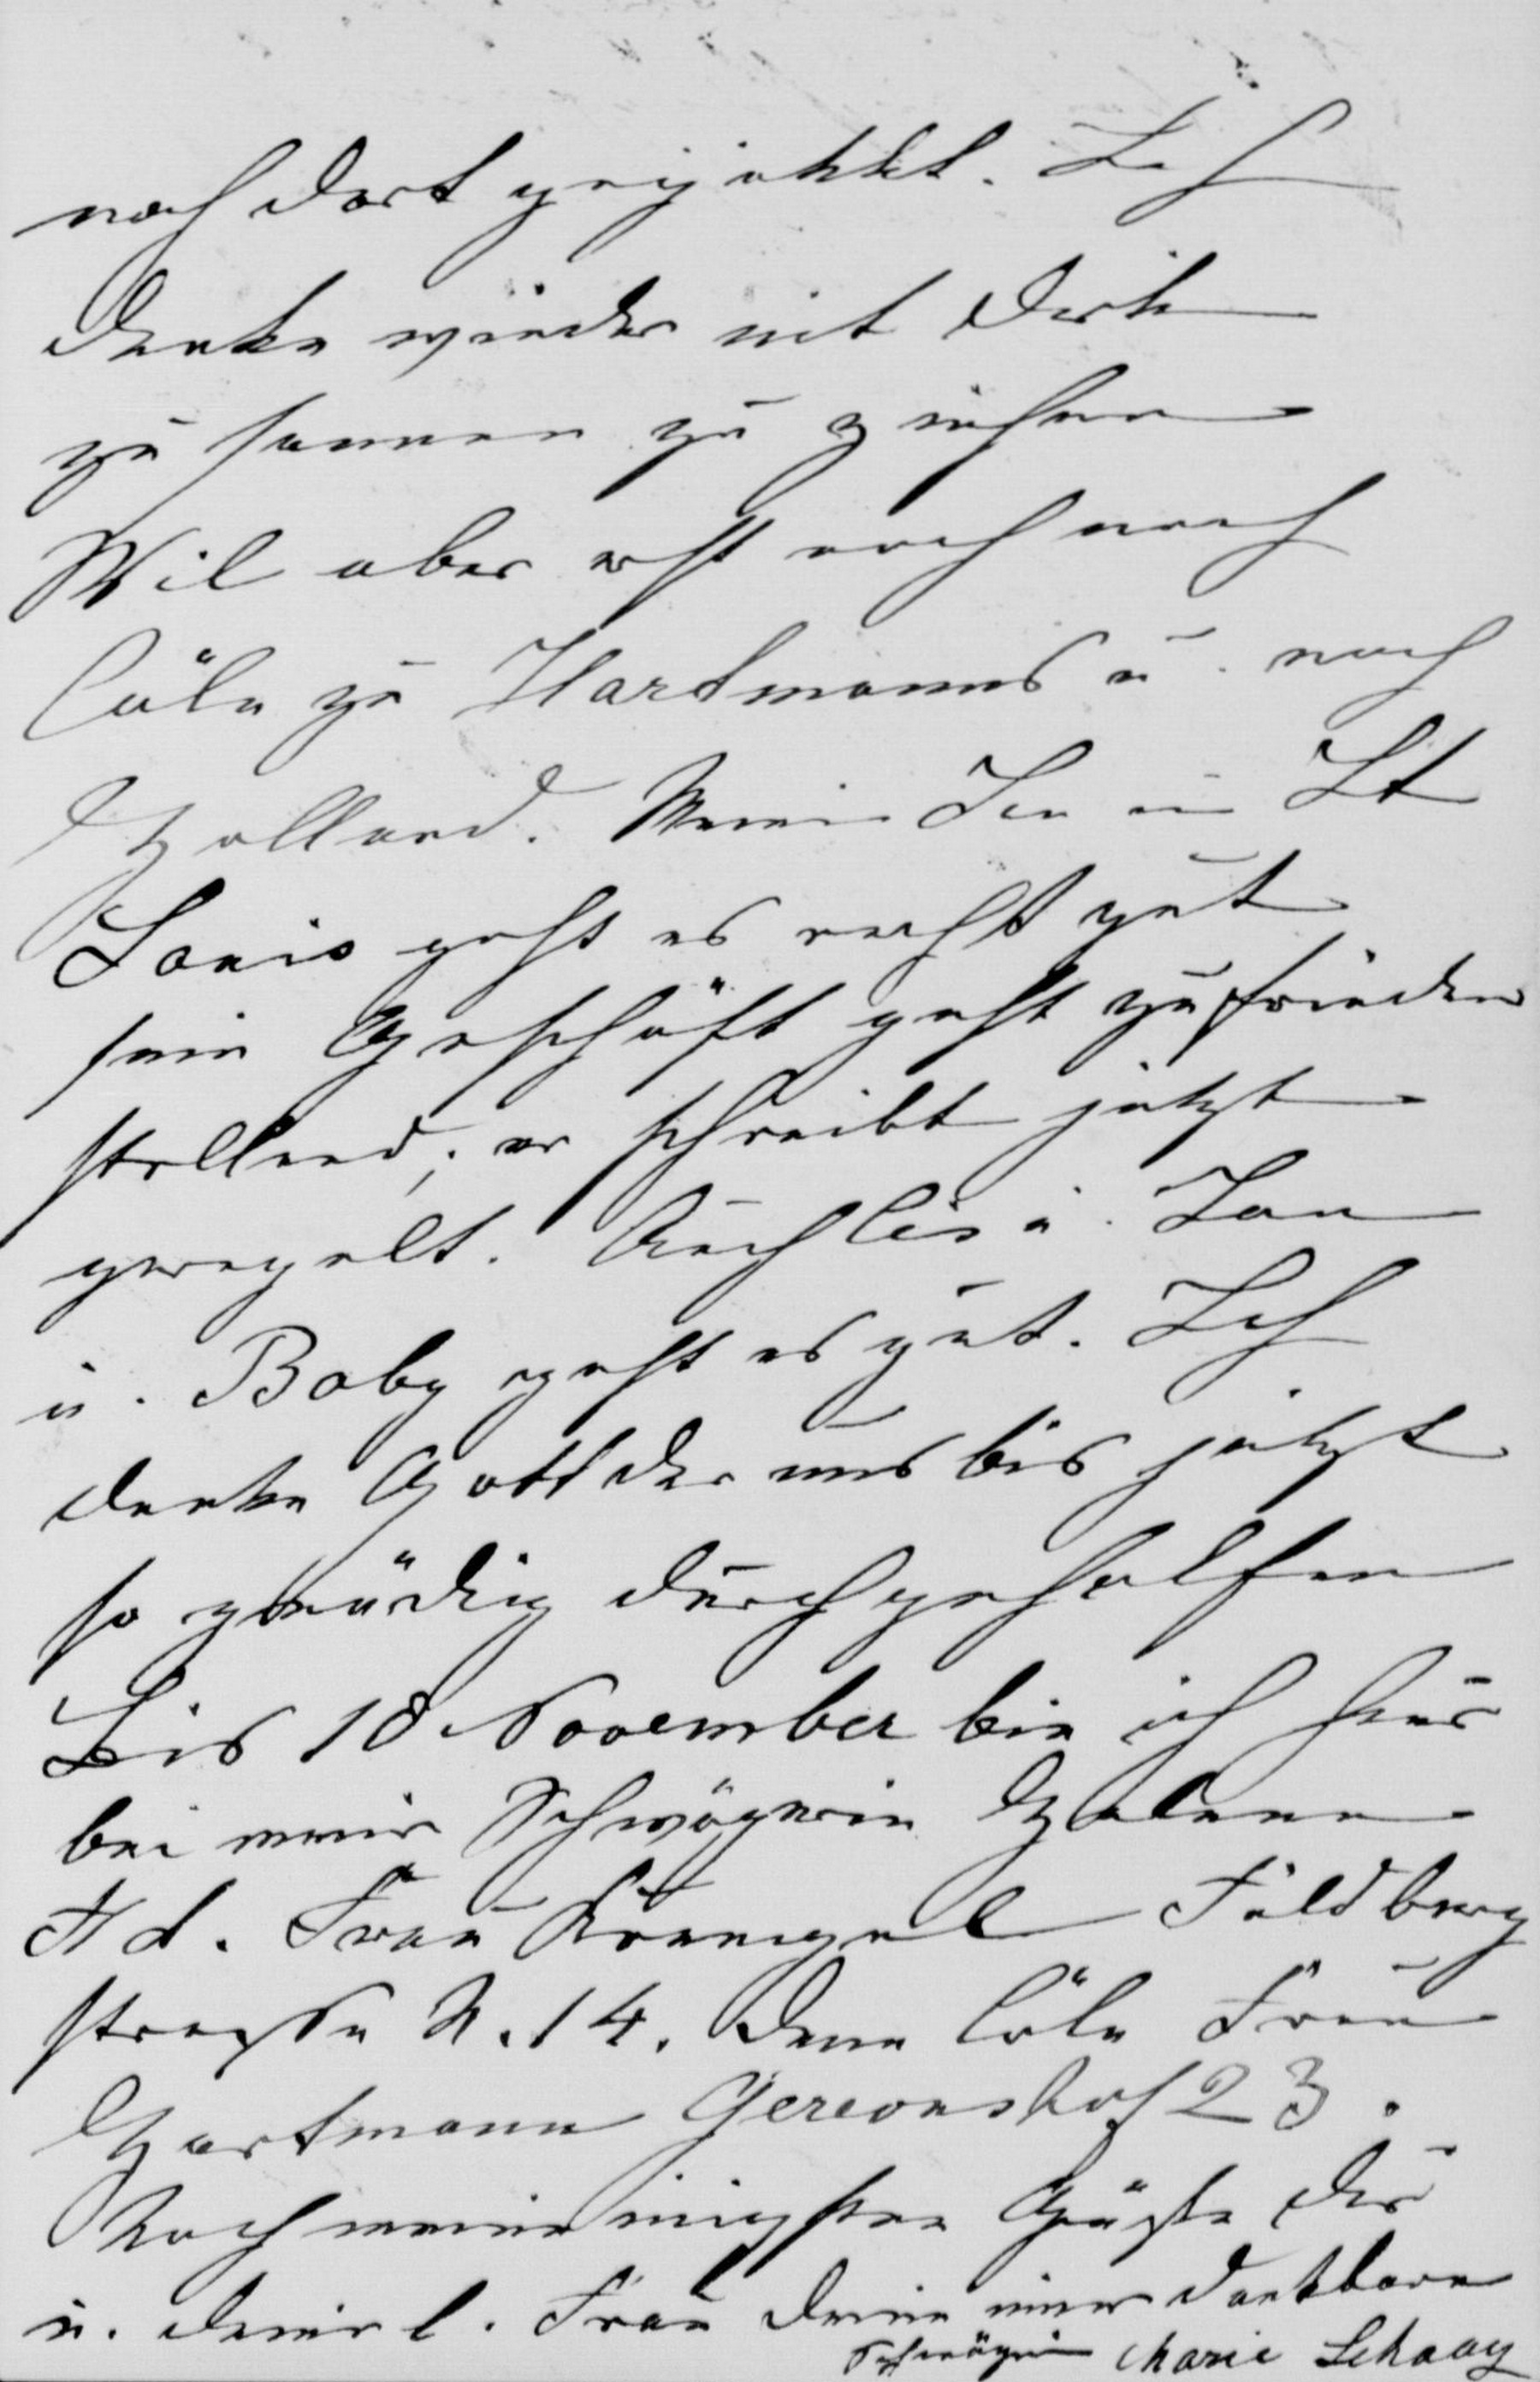 nach dort geschickt. Ich
denke wieder mit Dirk
zu samen zu ziehen
Wil aber erst noch nach
Cöln zu Hartmanns u. nach
Holland. Mein Son in St
Louis geht es recht gut
sein Geschäft geht zufrieden
stellend, er schreibt jetzt
geregelt. Auch Lis u. Jan
u. Baby geht es gut. Ich
danke Gott der uns bis jetzt
so gnädig durchgeholfen
Bis 18 November bin ich hier
bei meine Schwägerin Helene
Ad. Frau Kruegel Feldberg
strasse N. 14. dann Cöln Frau
Hartmann Gereonshof 23.
Noch meine innigsten Grüße dir
u. deine l. Frau deine immer dankbare
Schwägerin Marie Schaay